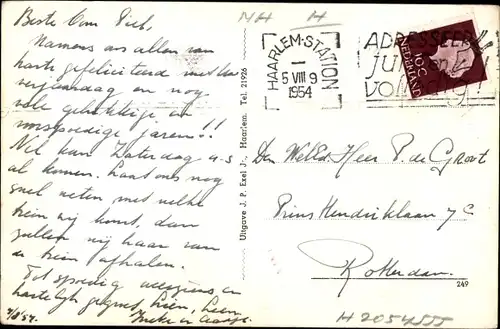 Beste Oom Piet,
Namens ons allen van
harte gefeliciteerd met Uw
verjaardag en nog
vele gelukkige en
voorspoedige jaren!!
Nel kan Zaterdag a.s
al komen. Laat ons nog
snel weten met welke
trein zij komt, dan
zullen wij haar van
de trein afhalen.
Tot spoedig weerziens en
hartelijk gegroet, Wien, Leen
Ineke en
4/8 '54.
Uitgave J. P. Exel Jr., Haarlem. Tel. 21926
NH H
HAARLEM-STATION
5 VIII 9
1954
ADRESSEER
juist en
volledig!
10 C
NEDERLAND
Den WelEd. Heer P. de Groot
Prins Hendriklaan 7c
Rotterdam.
249
H 2054555